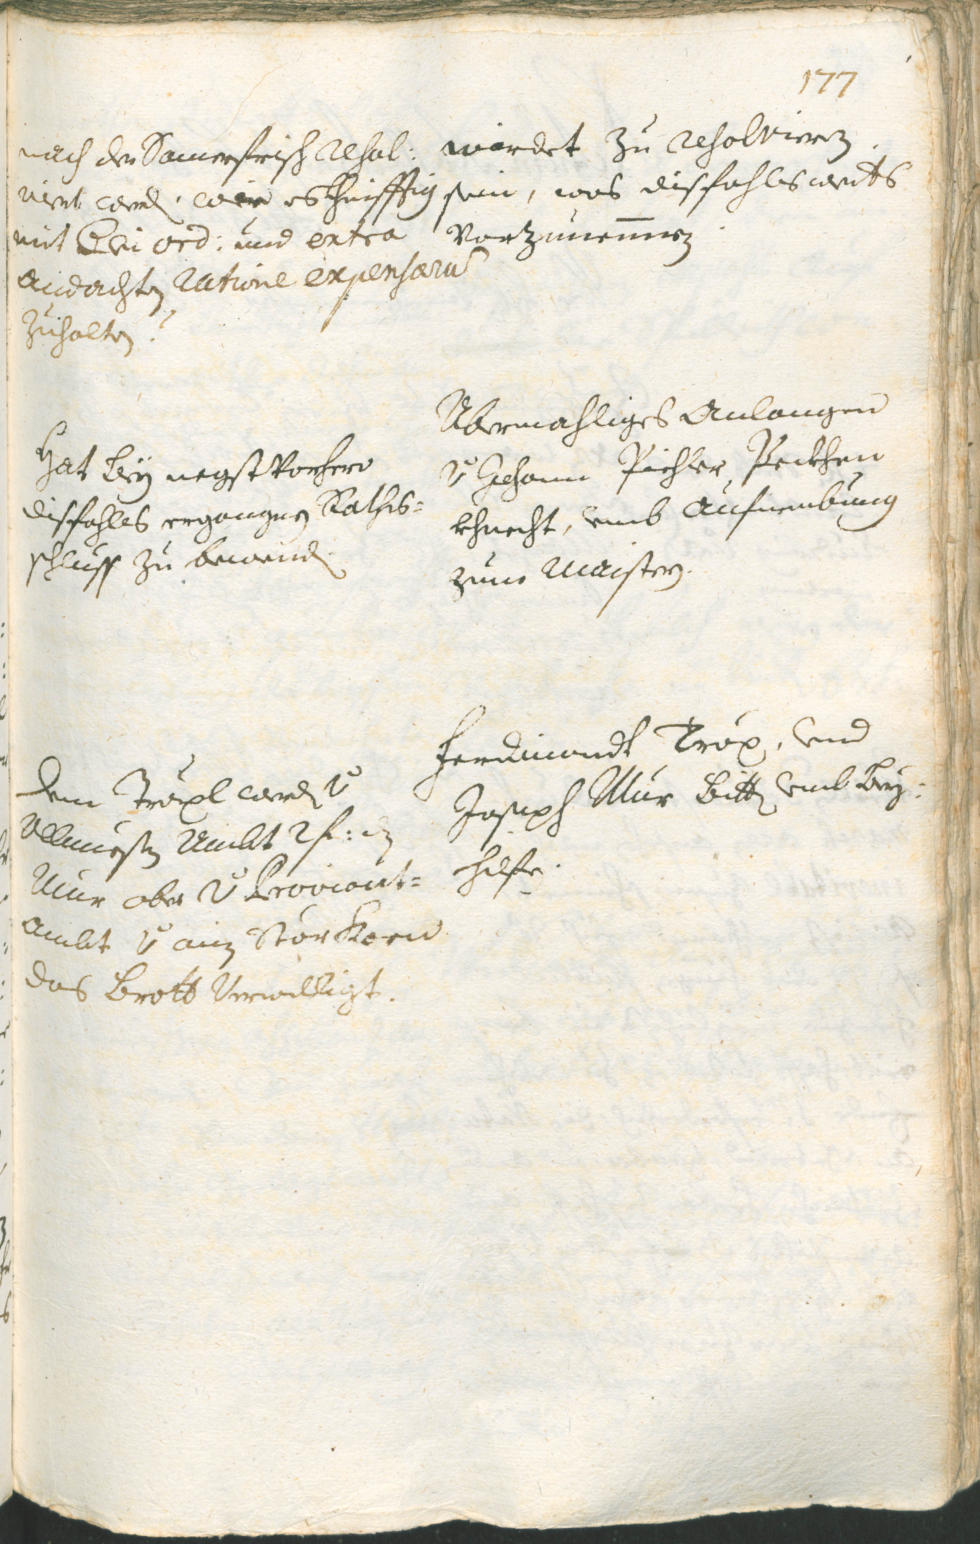 177
nach der Somerfrisch resol:
virt werd. wie es khinfftig
mit bei ord: und extra
Andachten ratione expensarum
zuhalten?
wirdet zu resolvieren
sein, was disfahls werts
vorzunemmen.
Hat bey negst vorhero
disfahls ergangnen Raths=
schluss zu bewend.
Abermahliges Anlangen
Johann Pichler, Peckhen
khnecht, umb Aufnembung
zum Maister.
Dem Tröxl werd v.
Allmuesen Ambt 2 f: dem
Mur aber v. Proviant=
ambt v. ain Stär Korn
das Brott verwilligt.
Ferdinandt Tröx, und
Joseph Mur bitten umb Bey=
hilfe.